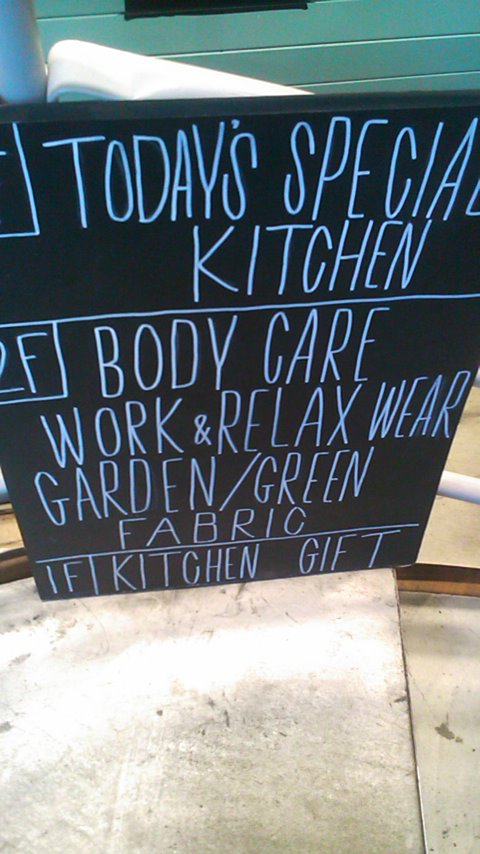 TODAY'S SPECIAL
KITCHEN
2F BODY CARE
WORK & RELAX WEAR
GARDEN/GREEN
FABRIC
1F KITCHEN GIFT